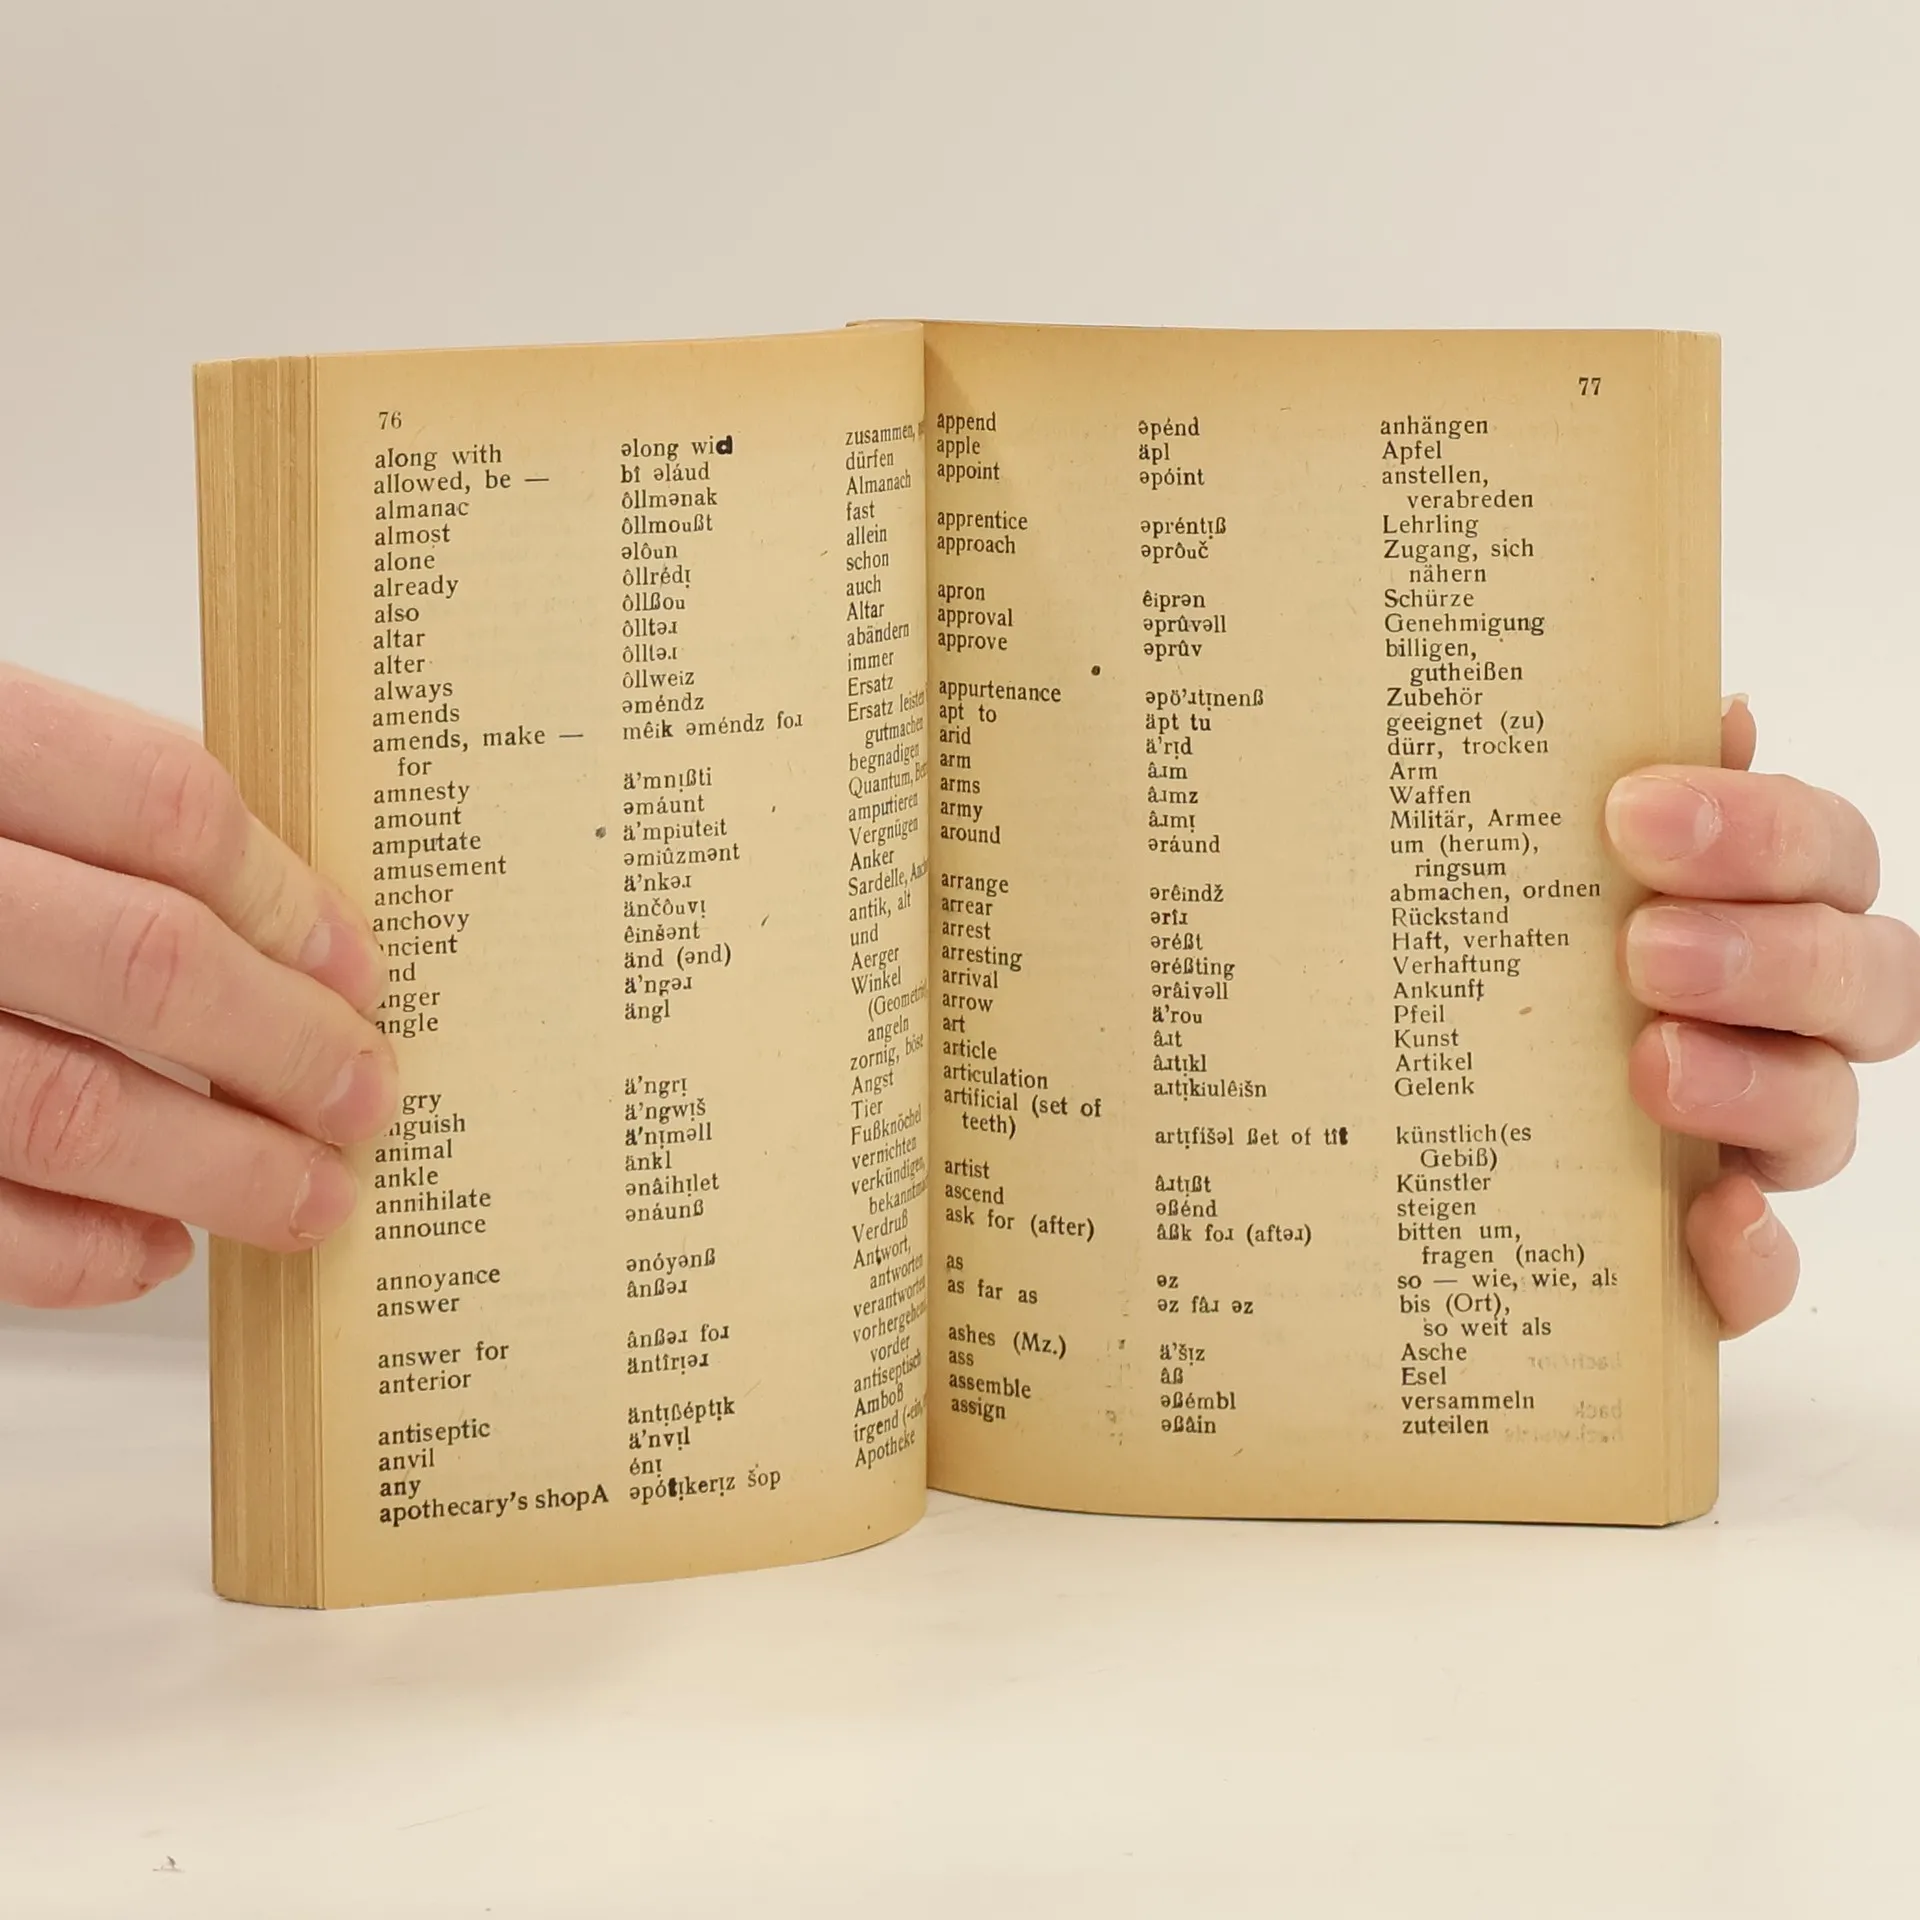 76
along with əlong wid zusammen,
allowed, be — bî əláud dürfen
almanac ôllmənak Almanach
almost ôllmoußt fast
alone əlôun allein
already ôllrédı̣ schon
also ôllßou auch
altar ôlltəɹ Altar
alter ôlltəɹ abändern
always ôllweiz immer
amends əméndz Ersatz
amends, make — mêik əméndz foɹ Ersatz leisten
for gutmachen
amnesty ä’mnı̣ßti begnadigen
amount əmáunt Quantum,
amputate ä’mpiuteit amputieren
amusement əmiûzmənt Vergnügen
anchor ä’nkəɹ Anker
anchovy änčôuvı̣ Sardelle,
ncient êinšənt antik, alt
nd änd (ənd) und
nger ä’ngəɹ Aerger
angle ängl Winkel
(Geometrie)
angeln
gry ä’ngrı̣ zornig, böse
nguish ä’ngwı̣š Angst
animal ä’nı̣məll Tier
ankle änkl Fußknöchel
annihilate ənâihı̣let vernichten
announce ənáunß verkündigen,
annoyance ənóyənß Verdruß
answer ânßəɹ Antwort,
antworten
answer for ânßəɹ foɹ verantworten
anterior äntîrı̣əɹ
vorder
antiseptic äntı̣ßéptı̣k antiseptisch
anvil ä’nvı̣l Amboß
any énı̣ irgend
apothecary’s shopA əpótı̣kerı̣z šop Apotheke
77
append əpénd anhängen
apple äpl Apfel
appoint əpóint anstellen,
verabreden
apprentice əpréntı̣ß Lehrling
approach əprôuč Zugang, sich
nähern
apron êiprən Schürze
approval əprûvəll Genehmigung
approve əprûv billigen,
gutheißen
appurtenance əpö’ɹtı̣nenß Zubehör
apt to äpt tu geeignet (zu)
arid ä’rı̣d dürr, trocken
arm âɹm Arm
arms âɹmz Waffen
army âɹmı̣ Militär, Armee
around əráund um (herum),
ringsum
arrange ərêindž abmachen, ordnen
arrear ərîɹ Rückstand
arrest əréßt Haft, verhaften
arresting əréßting Verhaftung
arrival ərâivəll Ankunft
arrow ä’rou Pfeil
art âɹt Kunst
article âɹtı̣kl Artikel
articulation aɹtı̣kiulêišn Gelenk
artificial (set of
teeth) artı̣fíšəl ßet of tît künstlich(es
Gebiß)
artist âɹtı̣ßt Künstler
ascend əßénd steigen
ask for (after) âßk foɹ (aftəɹ) bitten um,
fragen (nach)
as əz so — wie, wie, als
as far as əz fâɹ əz bis (Ort),
so weit als
ashes (Mz.) ä’šı̣z Asche
ass âß Esel
assemble əßémbl versammeln
assign əßâin zuteilen